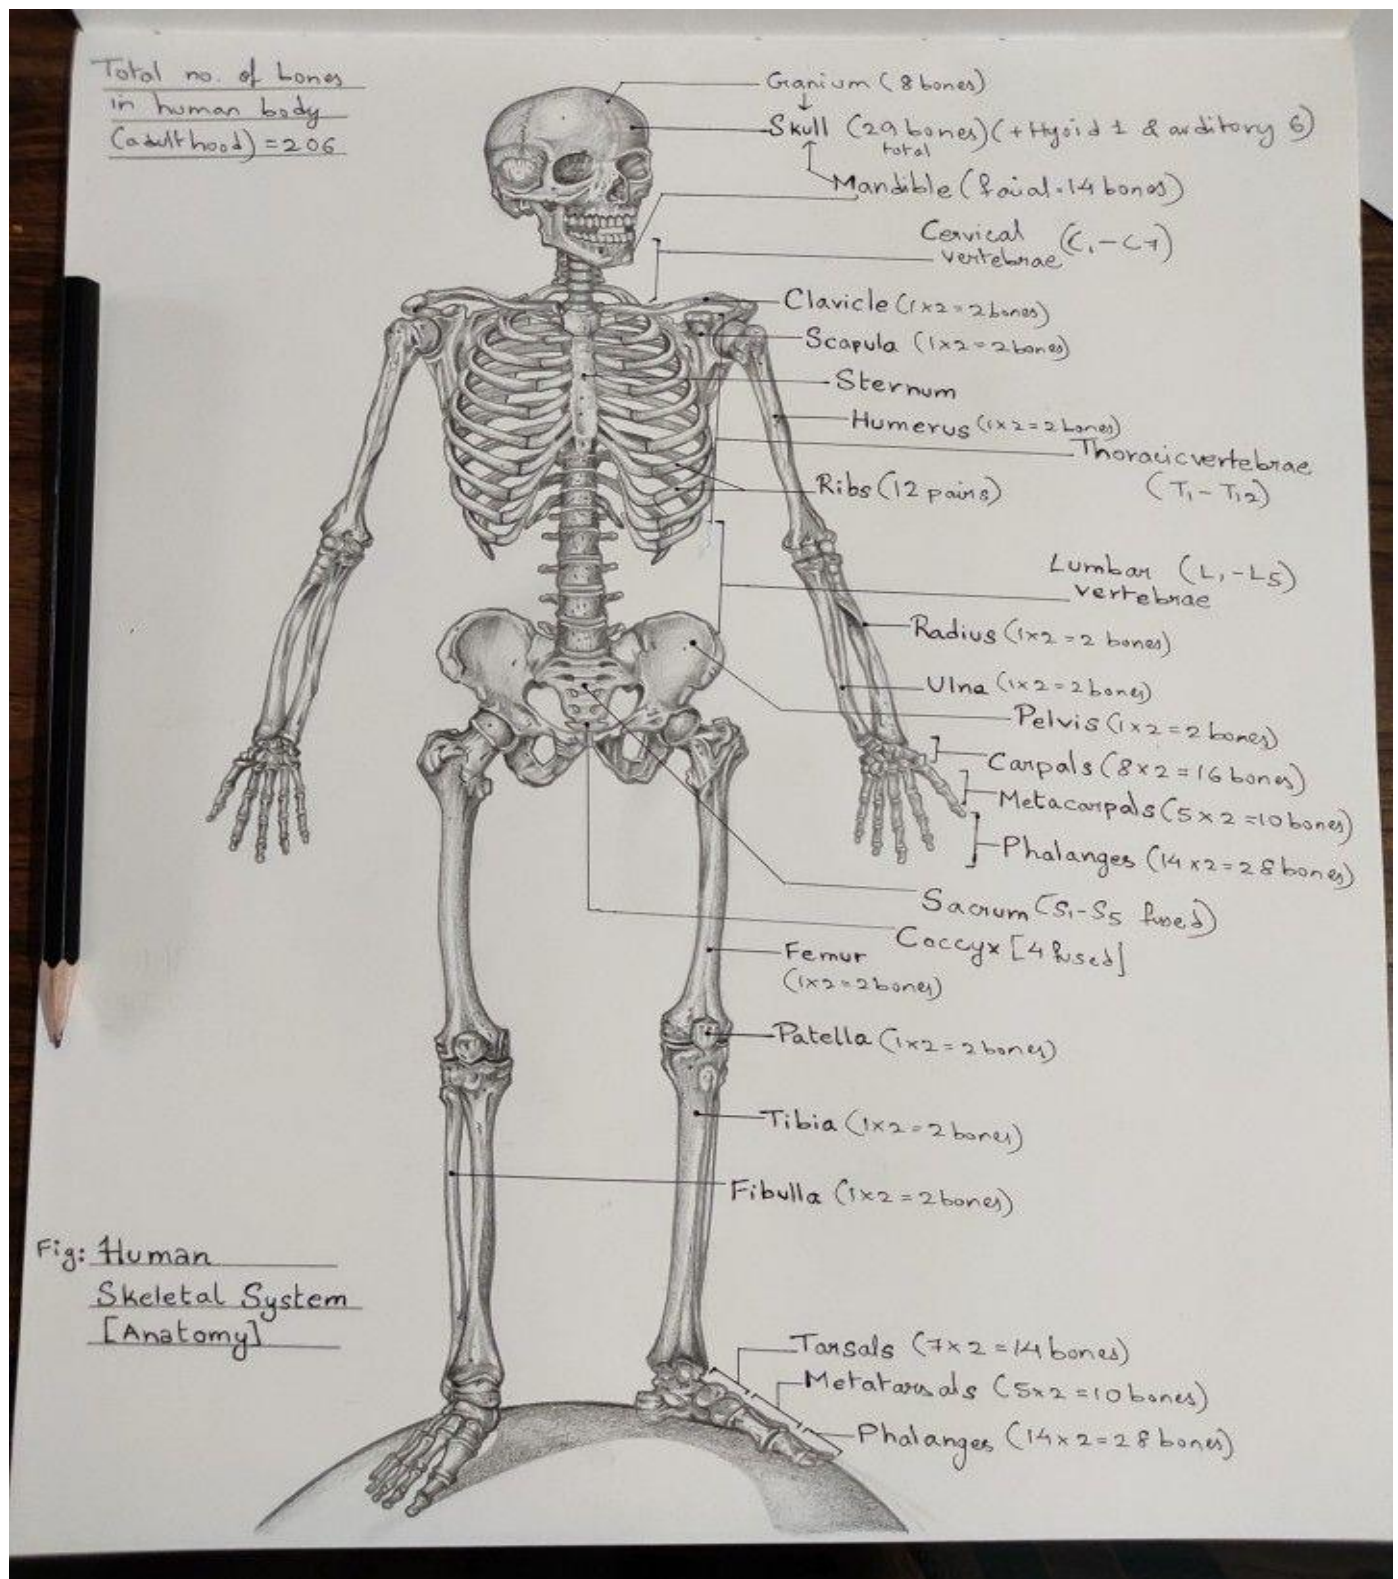 Total no. of bones
in human body
(adulthood) = 206
Cranium (8 bones)
Skull (29 bones) (+Hyoid 1 & auditory 6)
total
Mandible (facial-14 bones)
Cervical (C1-C7)
vertebrae
Clavicle (1x2=2bones)
Scapula (1x2=2bones)
Sternum
Humerus (1x2=2bones)
Thoracic vertebrae
(T1-T12)
Ribs (12 pairs)
Lumbar (L1-L5)
vertebrae
Radius (1x2=2 bones)
Ulna (1x2=2bones)
Pelvis (1x2=2bones)
Carpals (8x2=16 bones)
Metacarpals (5x2=10 bones)
Phalanges (14x2=28 bones)
Sacrum (S1-S5 fused)
Coccyx [4 fused]
Femur
(1x2=2bones)
Patella (1x2=2bones)
Tibia (1x2=2bones)
Fibulla (1x2=2bones)
Fig: Human
Skeletal System
[Anatomy]
Tarsals (7x2=14 bones)
Metatarsals (5x2=10 bones)
Phalanges (14x2=28 bones)